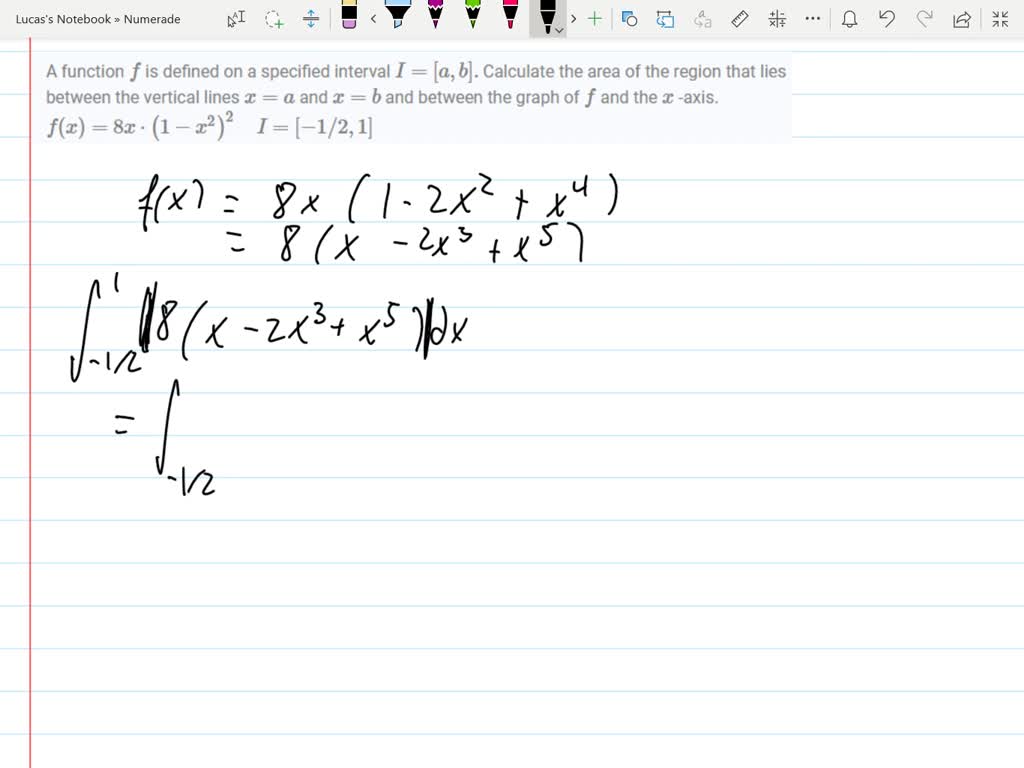 Lucas's Notebook » Numerade
A function f is defined on a specified interval I = [a, b]. Calculate the area of the region that lies
between the vertical lines x = a and x = b and between the graph of f and the x -axis.
f(x) = 8x · (1 − x²)²   I = [−1/2, 1]
f(x) = 8x (1 - 2x² + x⁴)
= 8 (x - 2x³ + x⁵)
∫_{-1/2}^{1} |8(x - 2x³ + x⁵)| dx
= ∫_{-1/2}